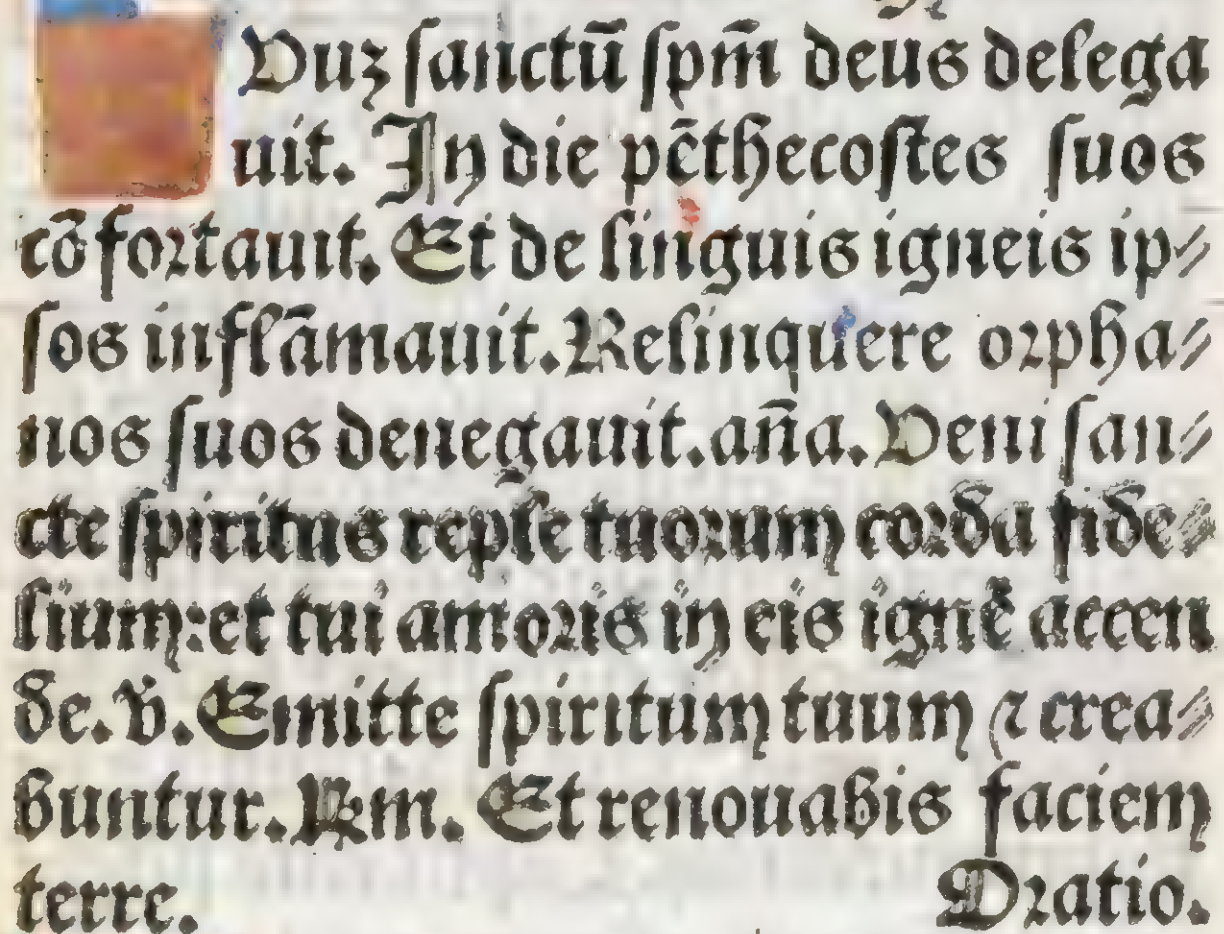 Duz sanctū spm̄ deus delega
uit. In die pēthecostes suos
cōfortauit. Et de linguis igneis ip⸗
sos inflāmauit. Relinquere orpha⸗
nos suos denegauit. aña. Veni san⸗
cte spiritus reple tuorum corda fide⸗
lium: et tui amoris in eis ignē accen
de. v̄. Emitte spiritum tuum ⁊ crea⸗
buntur. Rm. Et renouabis faciem
terre. Oratio.